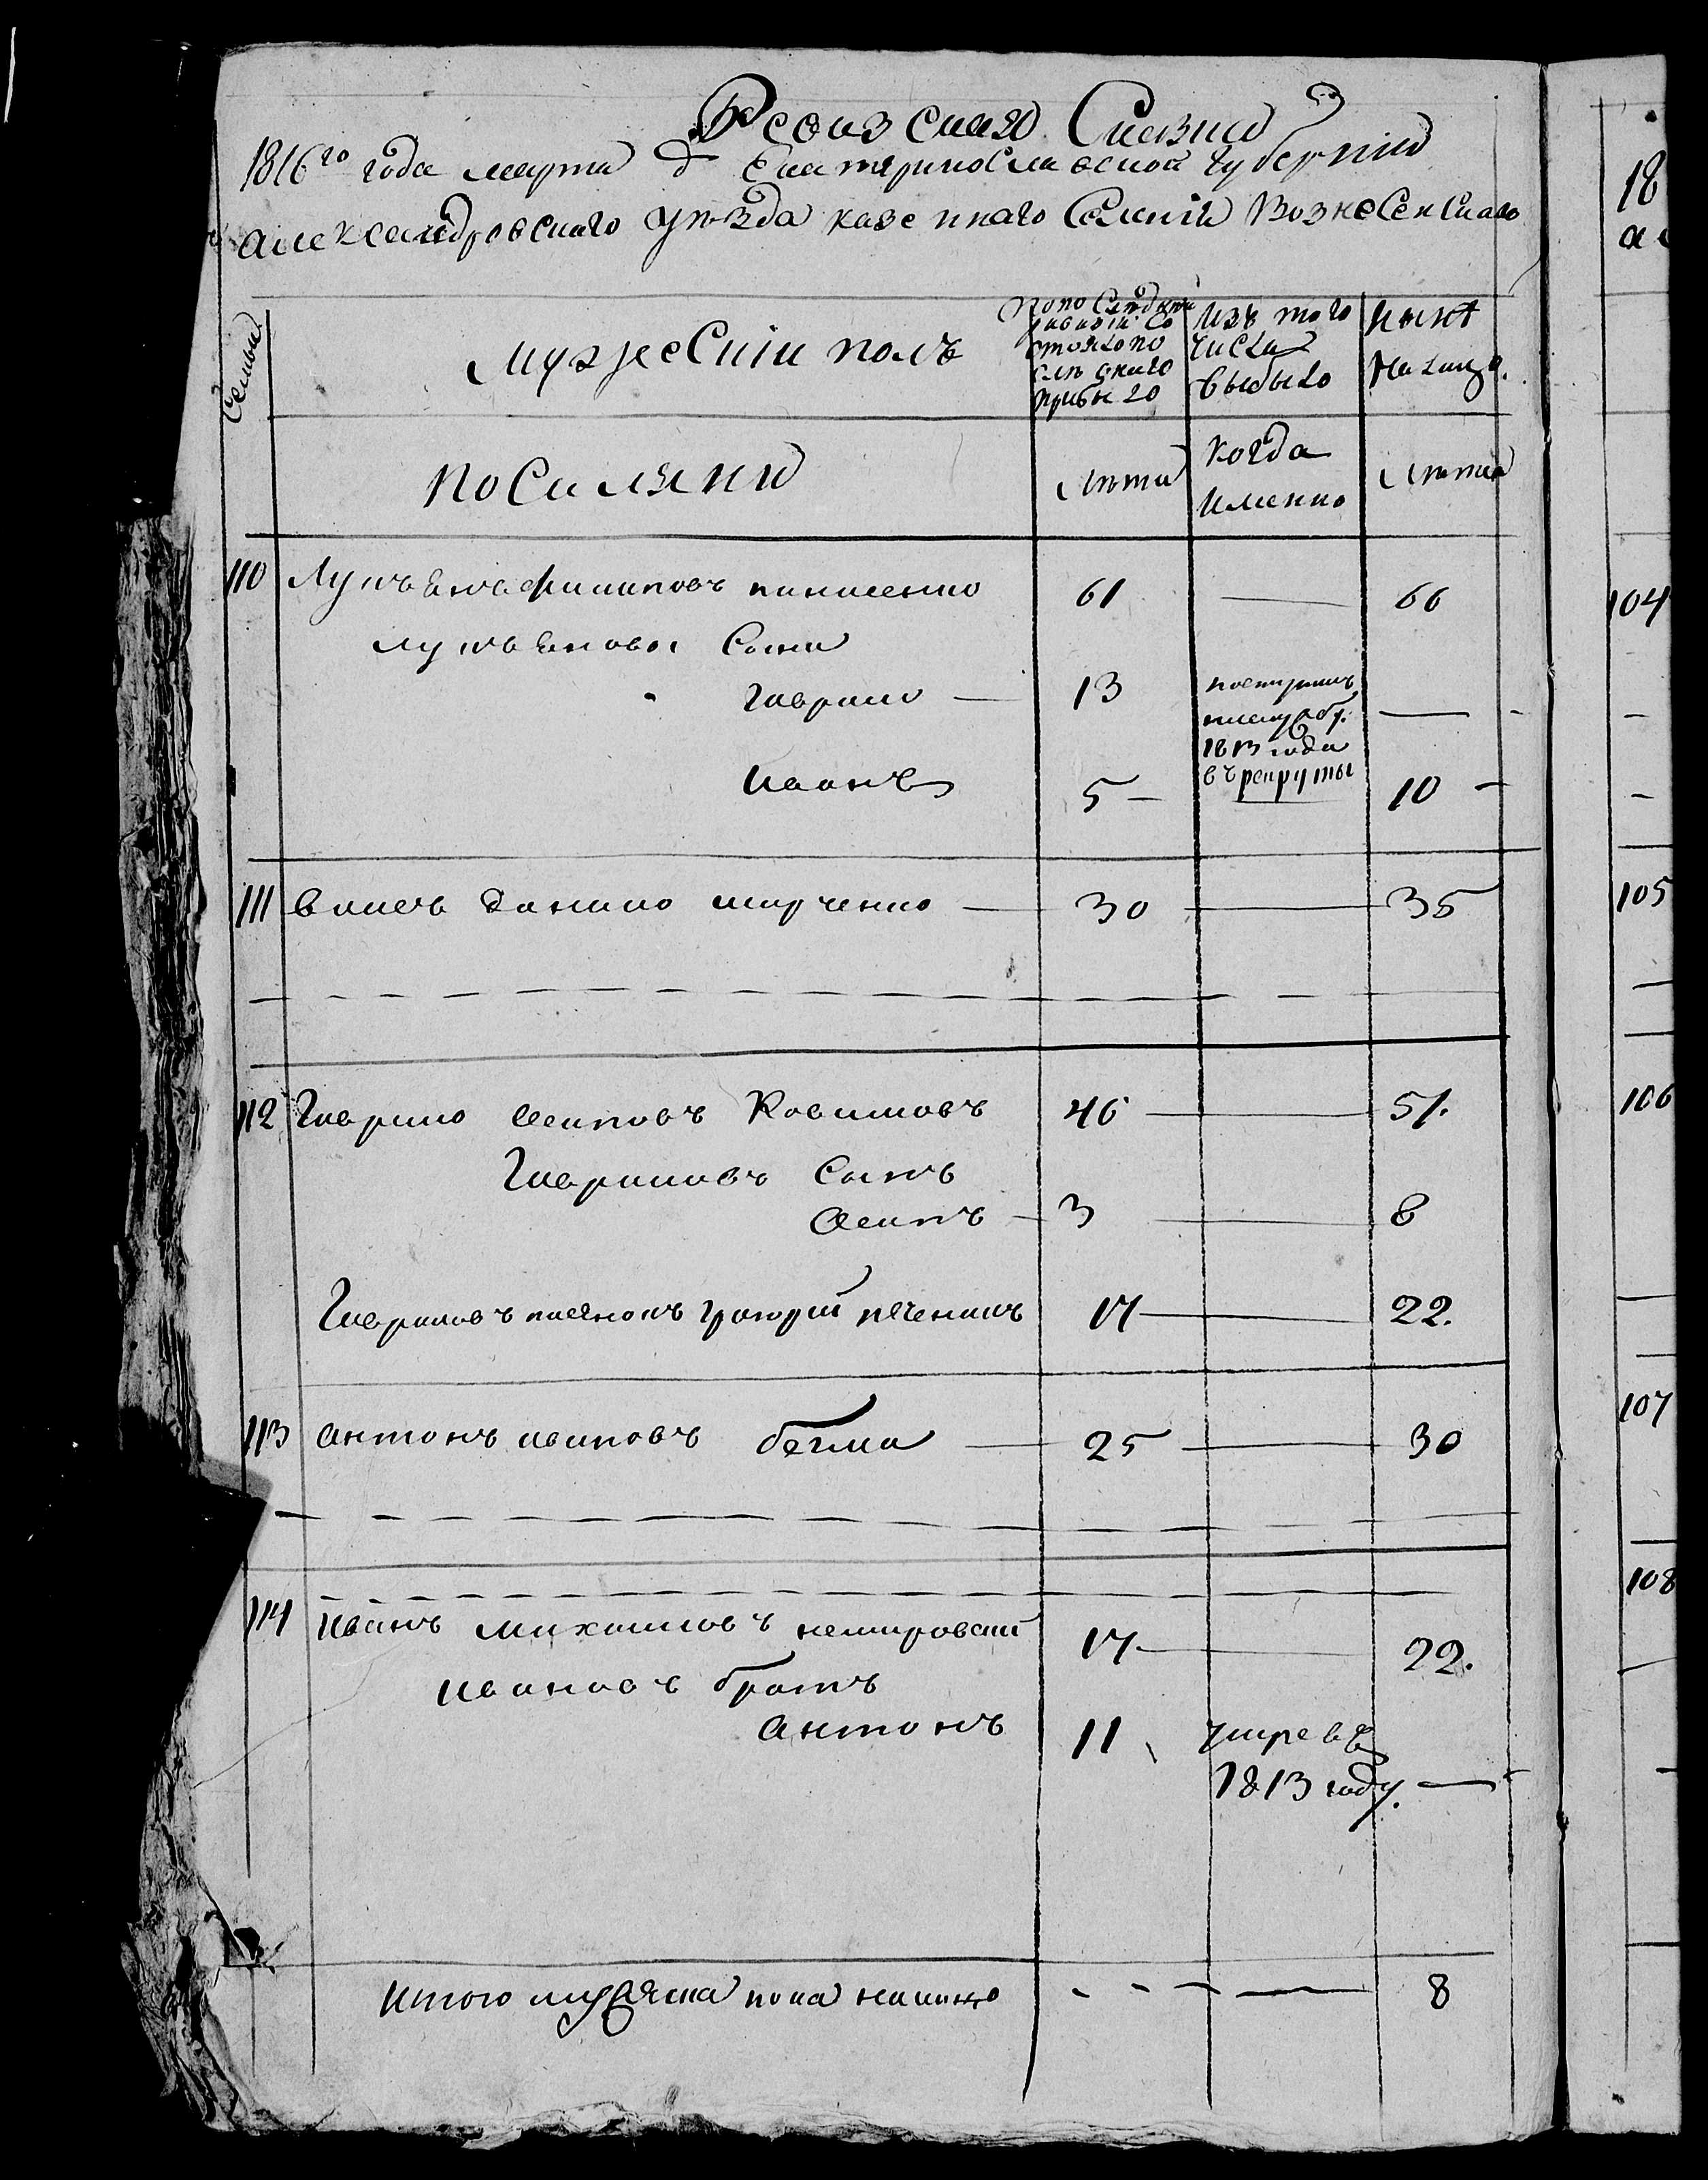 Ревизская Сказка
1816го года марта д Екатеринославской губернии
александровского уѣзда казеннаго Селенія Вознесенскаго
Семьи
Мужескій полъ
По последней ревизіи состояло по слѣ онаго прибыло
Изъ того числа выбыло
Ныне на лицо.
поселяни
лѣта
когда именно
лѣта
110 Лукъянъ Филиповъ 61 — 66
лукьяновы Сыни
гаврило — 13 1813 года въ рекруты —
иванъ 5 — 10
111 данило марченко — 30 — 35
112 Гаврило осиповъ 46 — 51.
Гавриловъ Сынъ
осипъ — 3 — 8
Гавриловъ григорий 17 — 22.
113 антонъ ивановъ бегма — 25 — 30
114 иванъ михаиловъ немировский 17 — 22.
ивановъ братъ
антонъ 11 умре въ
1813 году. —
итого мужеска пола налицо — 8
18
а
104
105
106
107
108